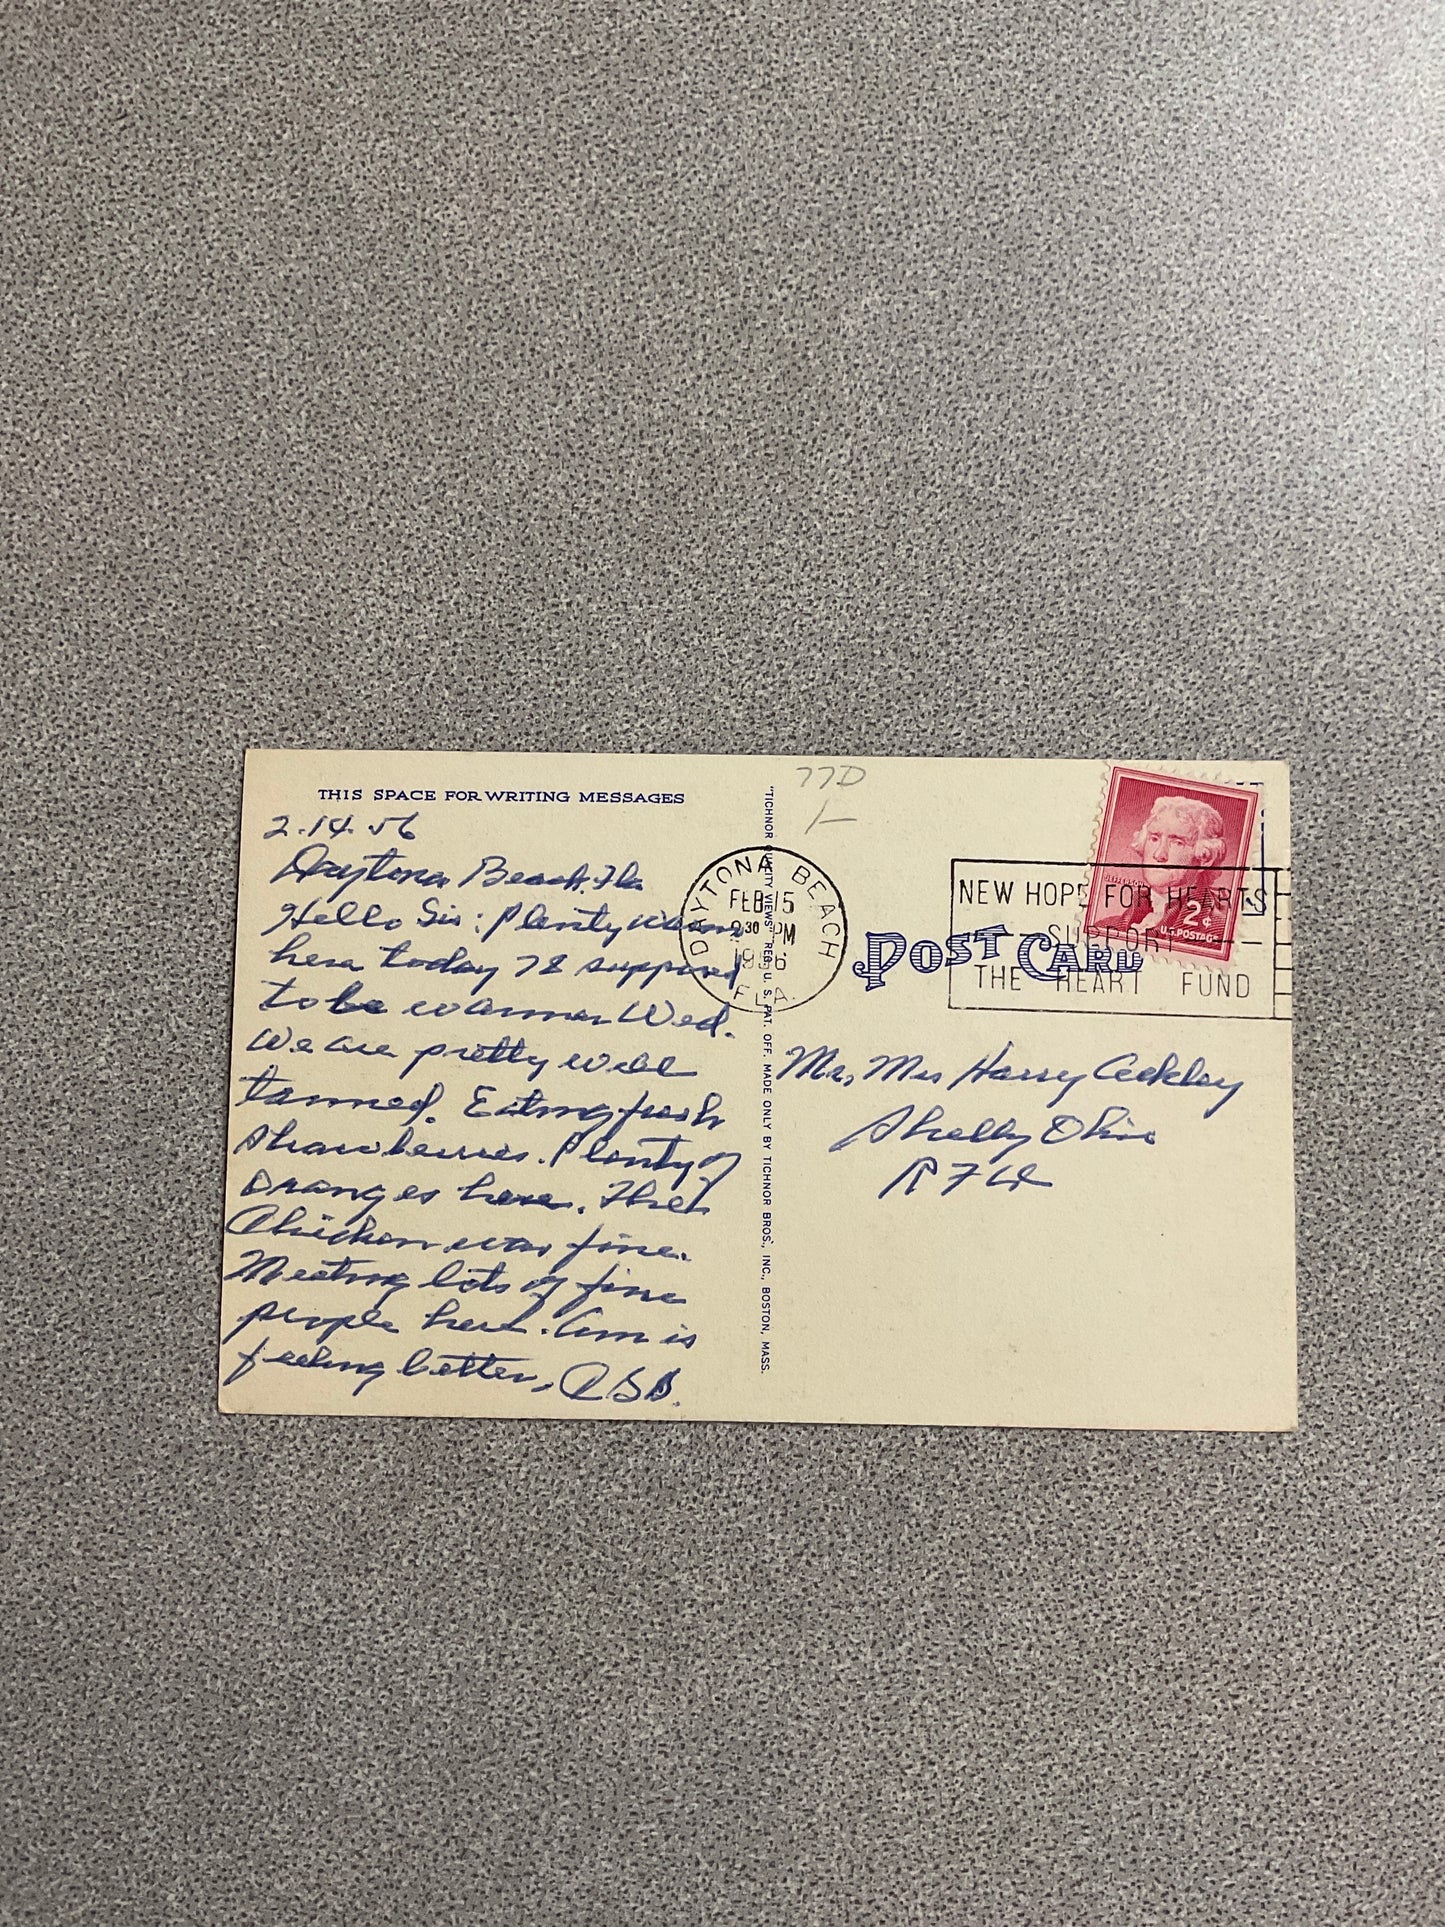 THIS SPACE FOR WRITING MESSAGES
2.14.56
Daytona Beach. Fla
Hello Sis: Plenty warm
here today 78 supposed
to be warmer Wed.
We are pretty well
tanned. Eating fresh
strawberries. Plenty of
Oranges here. The
Chicken was fine.
Meeting lots of fine
people here.       is
feeling better,
"TICHNOR QUALITY VIEWS" REG. U. S. PAT. OFF. MADE ONLY BY TICHNOR BROS., INC., BOSTON, MASS.
77D
1-
DAYTONA BEACH
FEB 15
30 PM
1956
FLA.
NEW HOPE FOR HEARTS
SUPPORT
THE HEART FUND
JEFFERSON
2¢
U.S. POSTAGE
POST CARD
Mr, Mrs Harry Ackley
Shelby Ohio